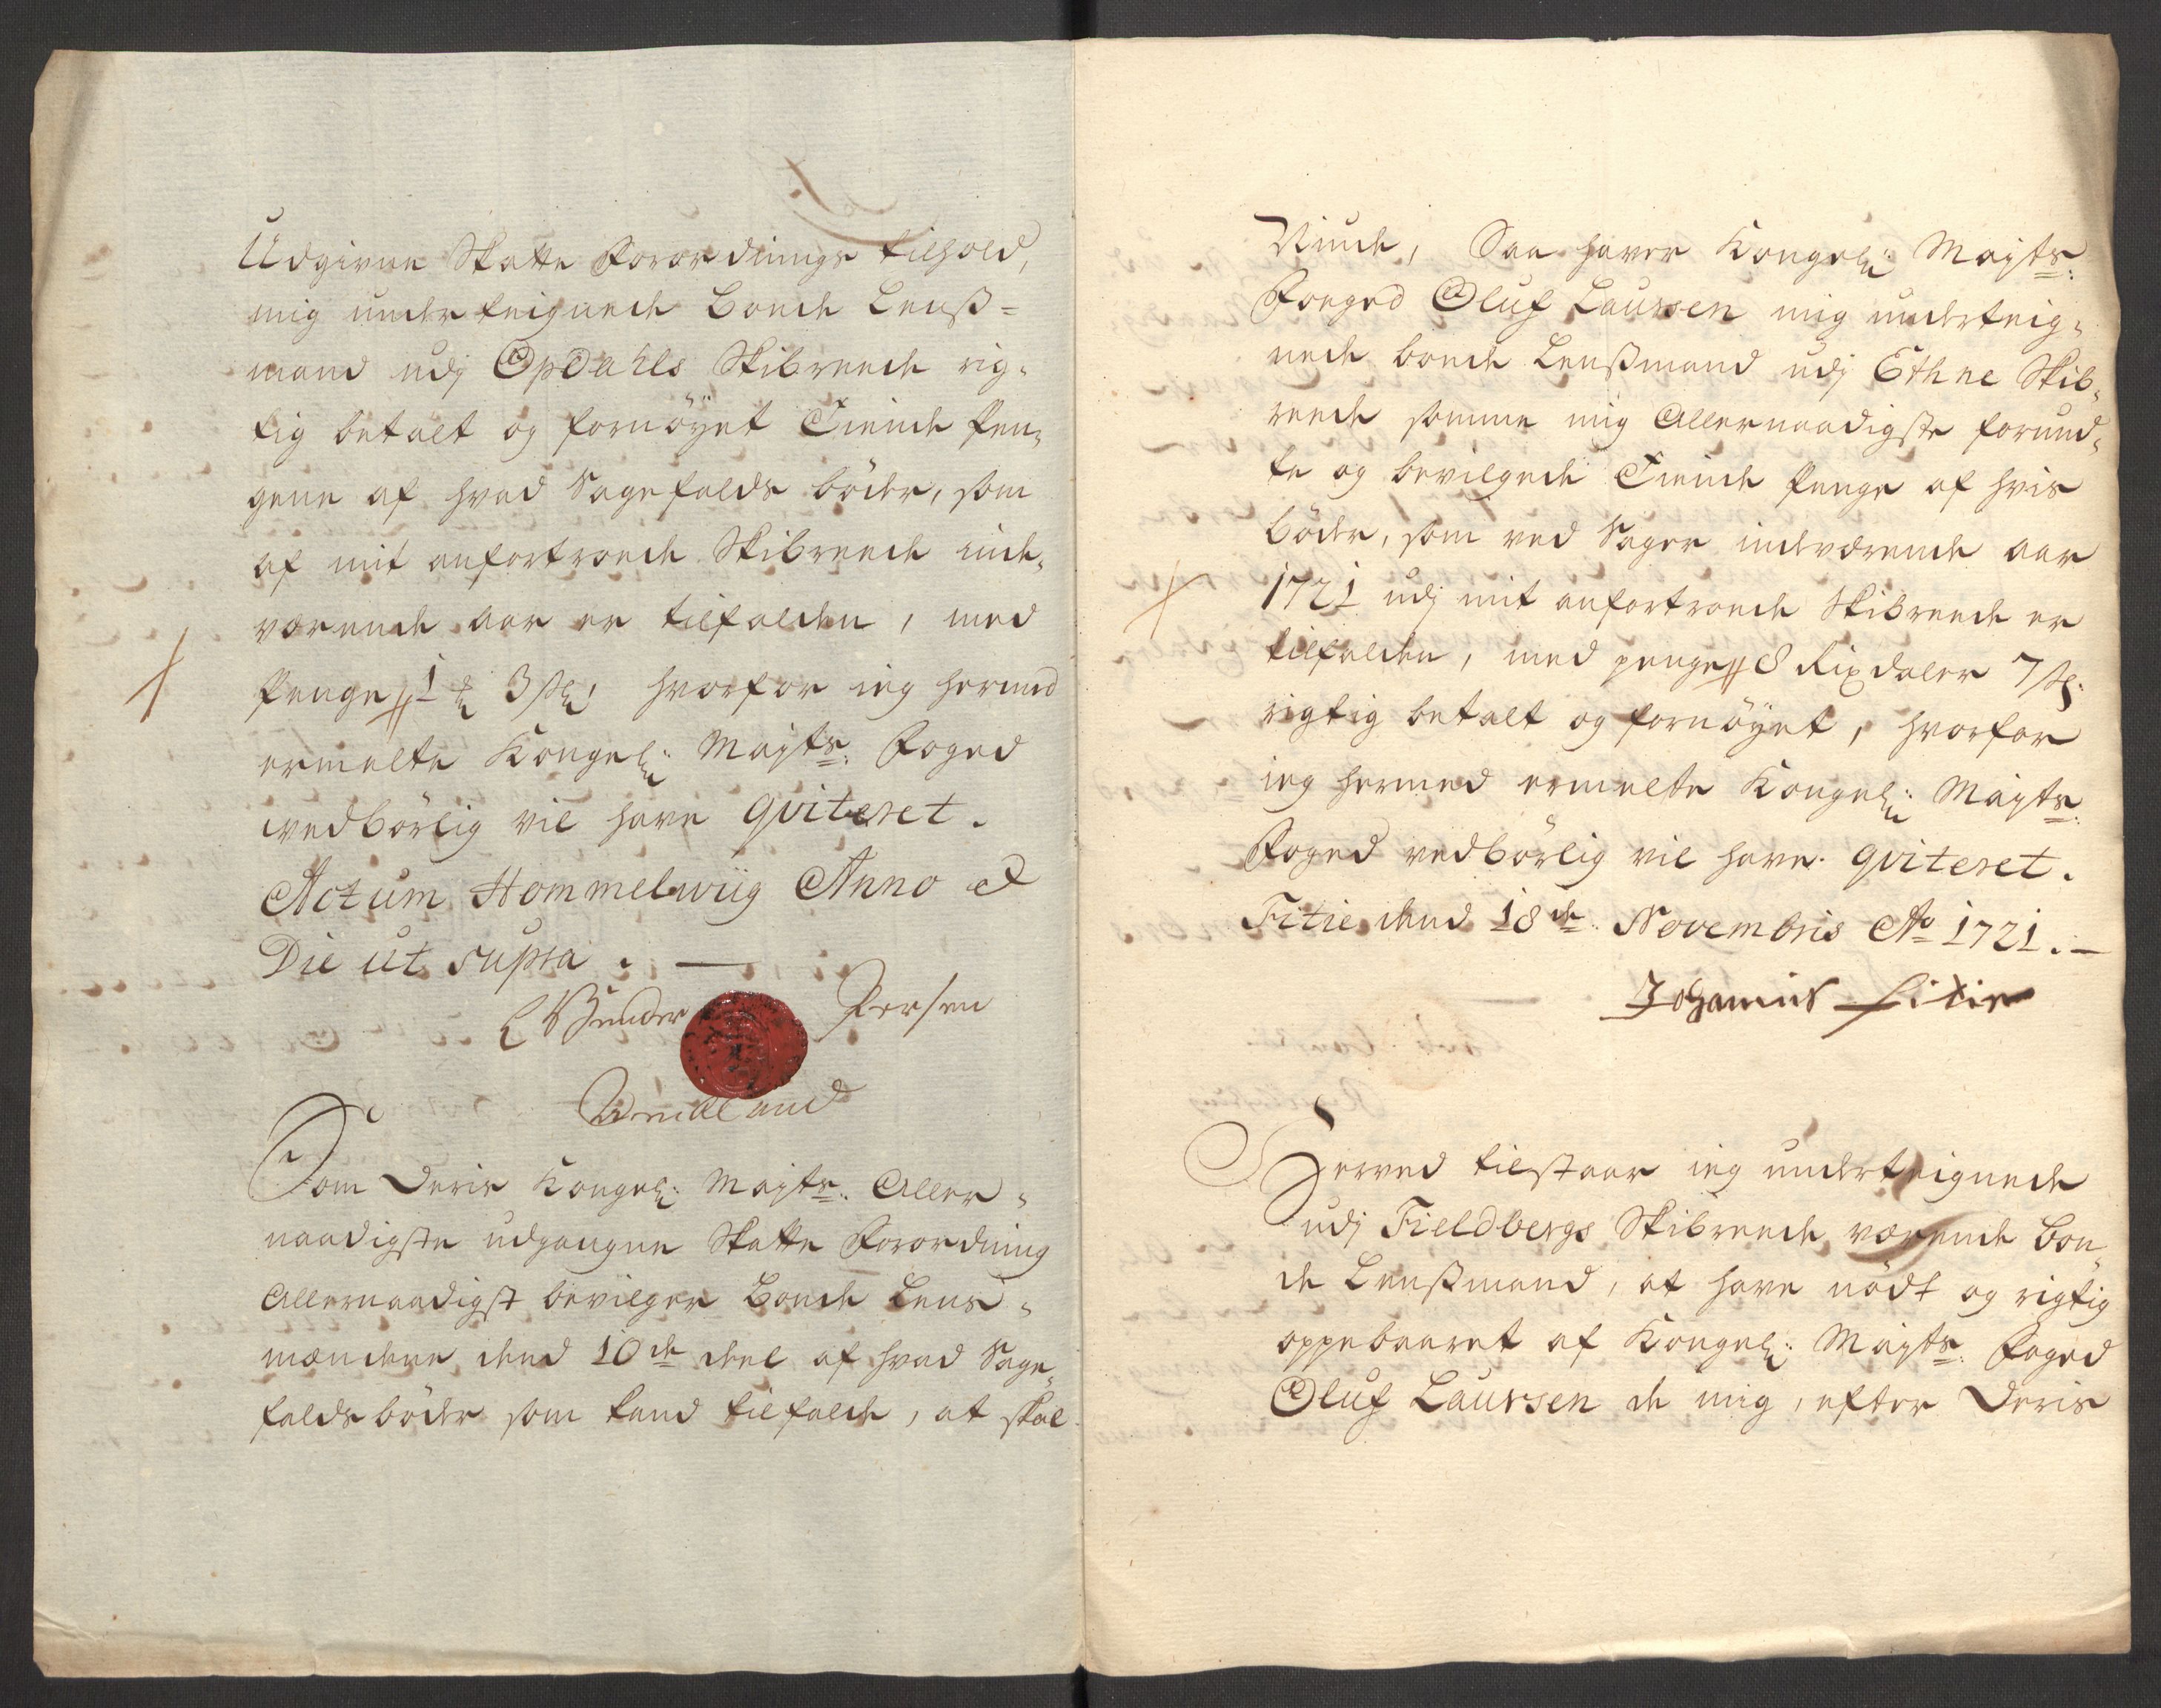 Udgivne Skatte Forordnings tilhold,
mig underteignede Bonde Lenß=
mand udj Opdahls Skibreede rig=
tig betalt og fornöyet Tiende Pen=
gene af hvad Sagefalds böder, som
af mit anfortroede Skibreede inde=
værende aar er tilfalden, med
Penge 1 rd 3 sk, hvorfor ieg hermed
ermelte Kongel: Maÿts: Foged
wedbörlig vil have qviteret.
Actum Hommelwiig Anno et
Die ut supra. —
Persen
Som Deris Kongel: Mayts: Aller=
naadigste udgangne Skatte Forordning
Allernaadigst bevilger Bonde Lens=
mændene dend 10de deel af hvad Sage=
falds böder som kand tilfalde, at skal
Niude, Saa haver Kongel: Mayts:
Foeged Oluf Laursen mig underteig=
nede bonde Lenßmand udj Ethne Skib=
reede somme mig Allernaadigste forund=
te og bevilgede Tiende Penge af hvis
böder, som ved Sager indeværende aar
1721 udj mit anfortroede Skibreede er
tilfalden, med penge 8 Rixdaler 7 sk:
rigtig betalt og fornöyet, hvorfor
ieg hermed ermelte Kongel: Mayts:
Foged vedbörlig vil have qviteret.
Fitie dend 18de Novembris Ao 1721. —
Johannis Fitie
Herved tilstaar ieg underteignede
udj Fieldbergs Skibreede værende Bon=
de Lenßmand, at have nödt og rigtig
oppebaaret af Kongel: Mayts: Foged
Oluf Laursen de mig, efter Deris